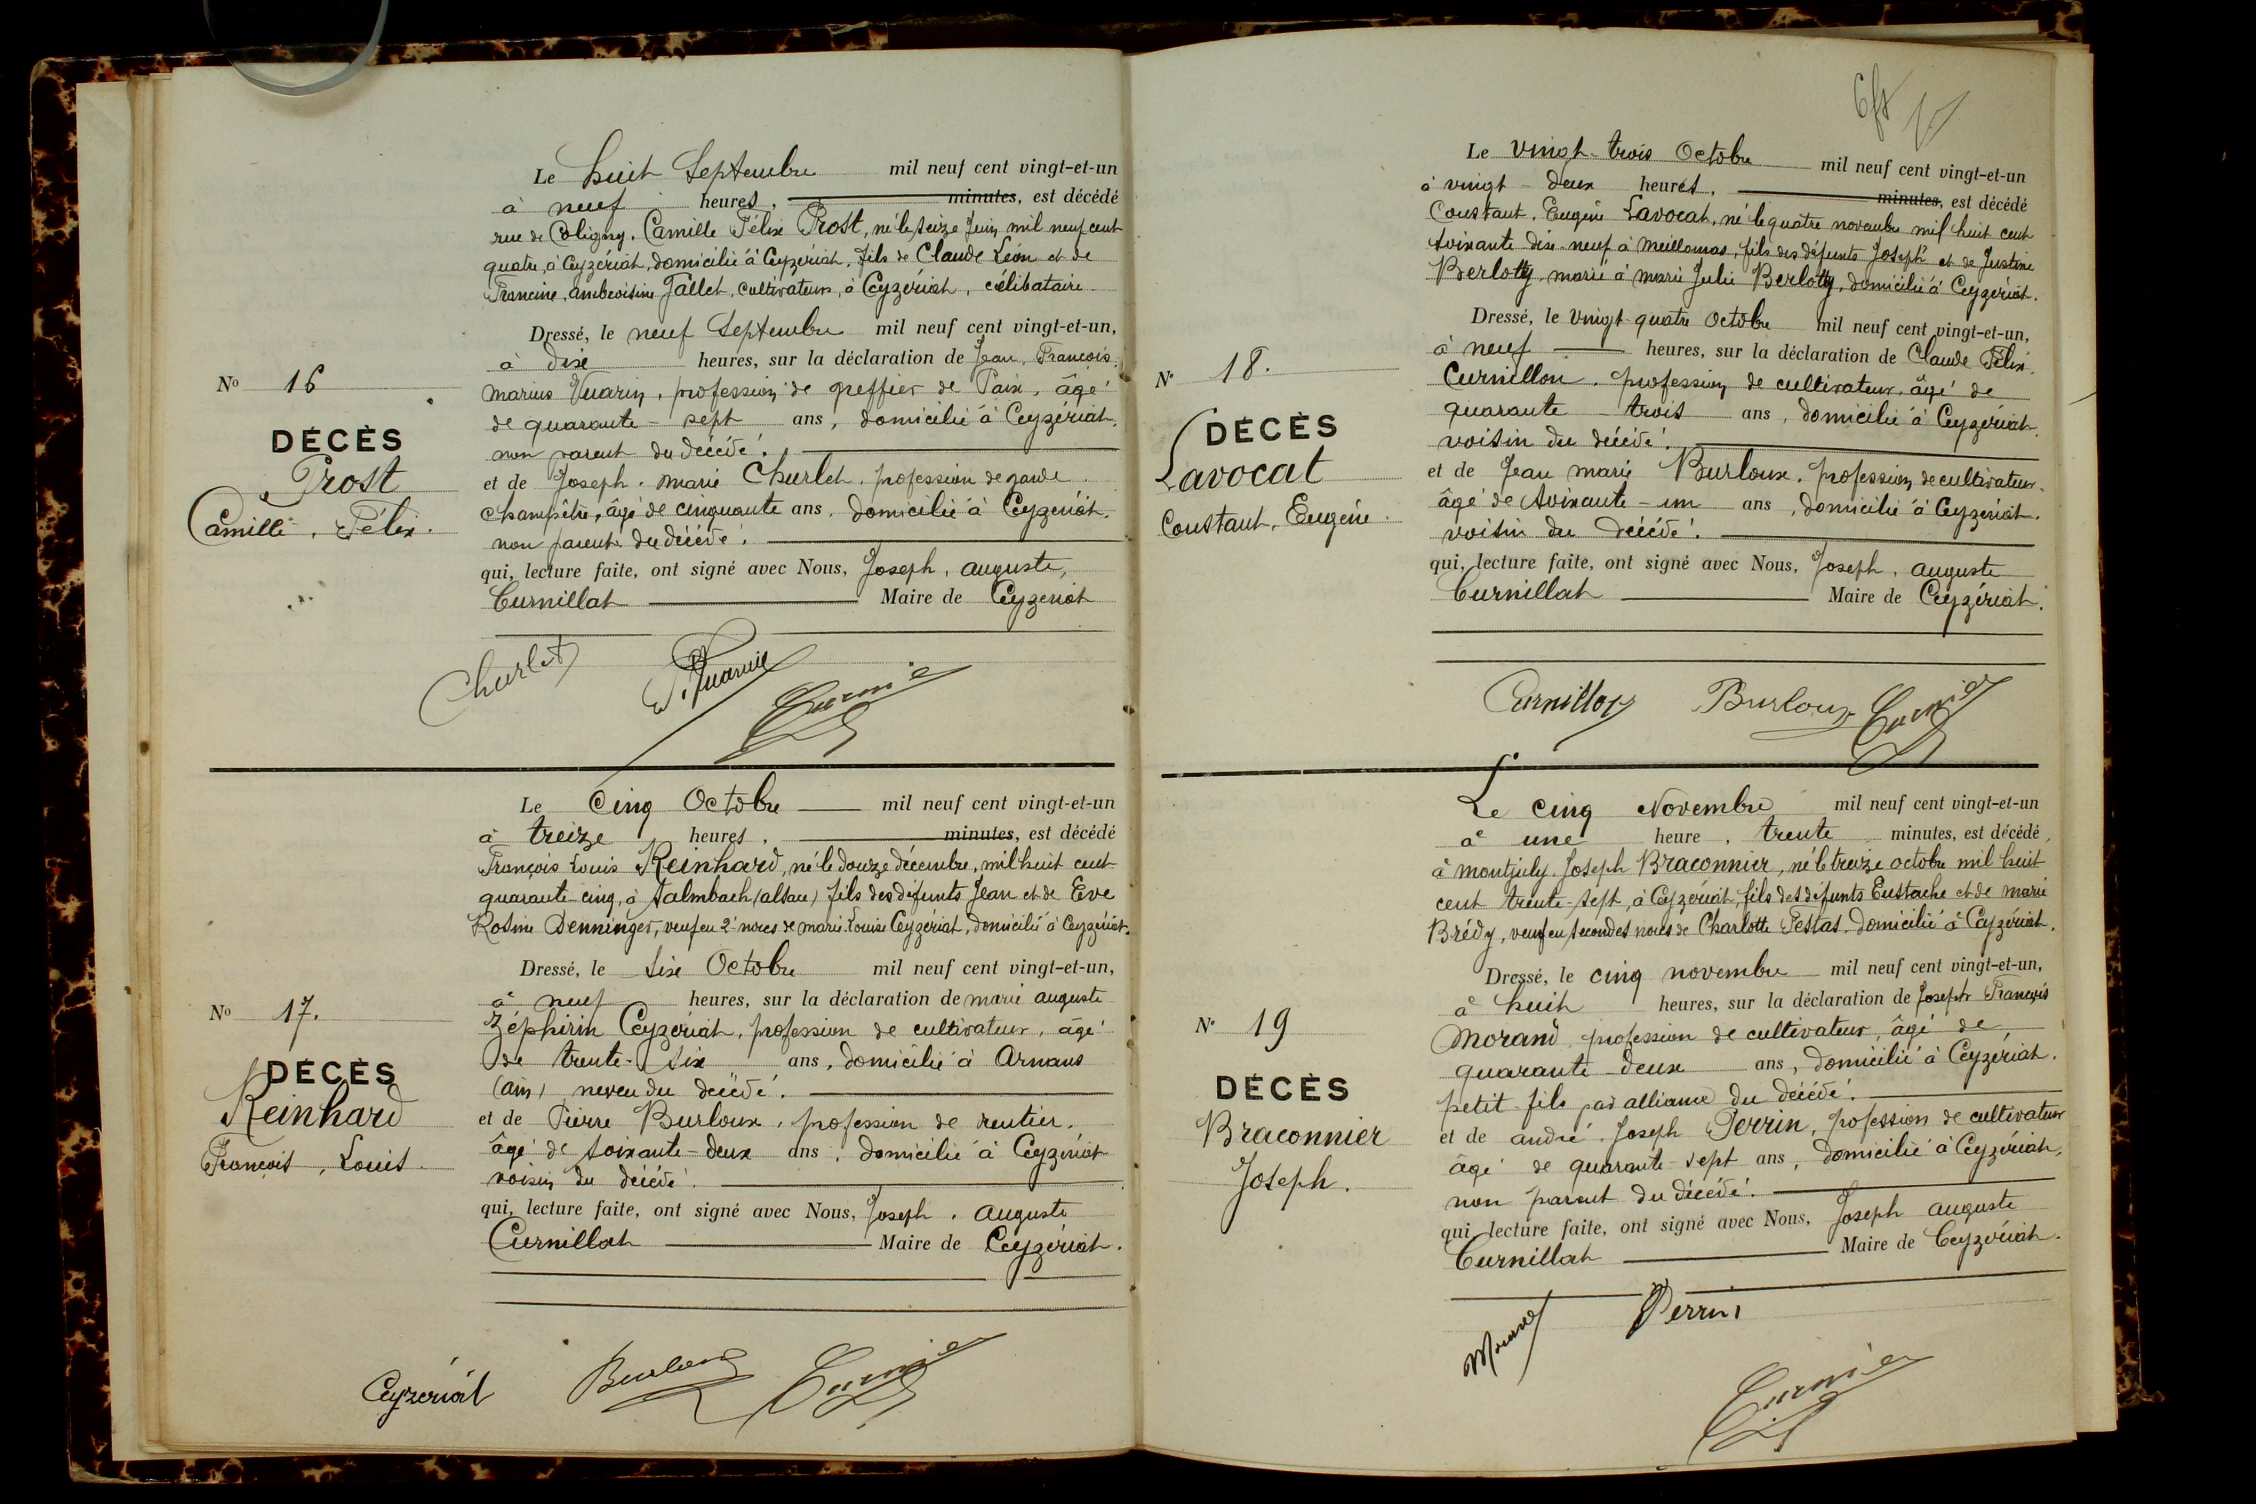 Le huit Septembre mil neuf cent vingt-et-un
à neuf heures, minutes, est décédé
rue de Coligny, Camille Félix Prost, né le seize Juin mil neuf cent
quatre, à Ceyzériat, domicilié à Ceyzériat, fils de Claude Léon et de
Francine, ambroisine Jallet, cultivateurs, à Ceyzériat, célibataire
Dressé, le neuf Septembre mil neuf cent vingt-et-un,
à dix heures, sur la déclaration de Jean, François
marius Vuarin, profession de greffier de Paix, âgé
de quarante-sept ans, domicilié à Ceyzériat,
non parent du décédé.
et de Joseph, marie Churlet, profession de garde
champêtre, âgé de cinquante ans, domicilié à Ceyzériat,
non parent du décédé.
qui, lecture faite, ont signé avec Nous, Joseph, auguste,
Curnillat Maire de Ceyzériat
No 16
DÉCÈS
Prost
Camille, Félix.
Churlet
Le cinq Octobre mil neuf cent vingt-et-un
à treize heures, minutes, est décédé
François Louis Reinhard, né le douze décembre, mil huit cent
quarante-cinq, à Salmbach (alsace) fils des défunts Jean et de Eve
Rosine Denninger, veuf en 2es noces de marie Louise Ceyzériat, domicilié à Ceyzériat.
Dressé, le six Octobre mil neuf cent vingt-et-un,
à neuf heures, sur la déclaration de marie auguste
Zéphirin Ceyzériat, profession de cultivateur, âgé
de trente-six ans, domicilié à Arnans
(ain) neveu du décédé.
et de Pierre Burloux, profession de rentier,
âgé de soixante-deux ans, domicilié à Ceyzériat
voisin du décédé.
qui, lecture faite, ont signé avec Nous, Joseph, auguste
Curnillat Maire de Ceyzériat.
No 17.
DÉCÈS
Reinhard
François, Louis.
Ceyzeriat Burloux
Le vingt-trois Octobre mil neuf cent vingt-et-un
à vingt-deux heures, minutes, est décédé
Constant, Eugène Lavocat, né le quatre novembre mil huit cent
soixante dix-neuf à Meillonnas, fils des défunts Joseph et de Justine
Berlotty, marié à marie Julie Berlotty, domicilié à Ceyzériat.
Dressé, le vingt-quatre Octobre mil neuf cent vingt-et-un,
à neuf heures, sur la déclaration de Claude Félix
Curnillon, profession de cultivateur, âgé de
quarante-trois ans, domicilié à Ceyzériat
voisin du décédé.
et de Jean marie Burloux, profession de cultivateur
âgé de soixante-un ans, domicilié à Ceyzériat,
voisin du décédé.
qui, lecture faite, ont signé avec Nous, Joseph, auguste
Curnillat Maire de Ceyzériat.
No 18.
DÉCÈS
Lavocat
Constant, Eugène.
Curnillon Burloux
Le cinq Novembre mil neuf cent vingt-et-un
à une heure, trente minutes, est décédé
à montjuly, Joseph Braconnier, né le treize octobre mil huit
cent trente-sept, à Ceyzériat, fils des défunts Eustache et de marie
Brédy, veuf en secondes noces de Charlotte Festas, domicilié à Ceyzériat.
Dressé, le cinq novembre mil neuf cent vingt-et-un,
à huit heures, sur la déclaration de Joseph François
Morand, profession de cultivateur, âgé de
quarante-deux ans, domicilié à Ceyzériat,
petit-fils par alliance du décédé.
et de andré, Joseph Perrin, profession de cultivateur
âgé de quarante-sept ans, domicilié à Ceyzériat,
non parent du décédé.
qui, lecture faite, ont signé avec Nous, Joseph auguste
Curnillat Maire de Ceyzériat.
No 19
DÉCÈS
Braconnier
Joseph.
Morand Perrin